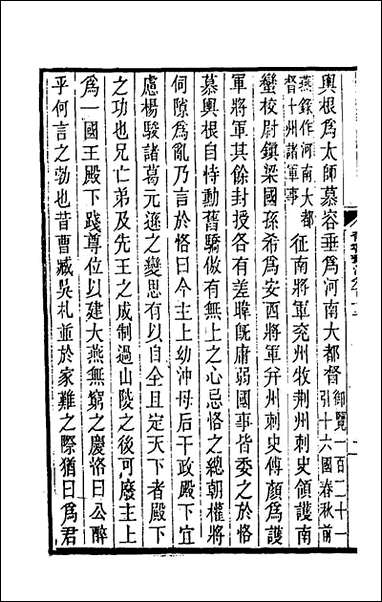 輿根爲太師慕容垂爲河南大都督御覽一百二十一引十六國春秋前
燕錄作河南大都督十州諸軍事征南將軍兗州牧荆州刺史領護南
蠻校尉鎮梁國孫希爲安西將軍并州刺史傅顏爲護
軍將軍其餘封授各有差暐既庸弱國事皆委之於恪
慕輿根自恃勳舊驕傲有無上之心忌恪之總朝權將
伺隙爲亂乃言於恪曰今主上幼沖母后干政殿下宜
慮楊駿諸葛元遜之變思有以自全且定天下者殿下
之功也兄亡弟及先王之成制過山陵之後可廢主上
爲一國王殿下踐尊位以建大燕無窮之慶恪曰公醉
乎何言之勃也昔曹臧吳札並於家難之際猶曰爲君